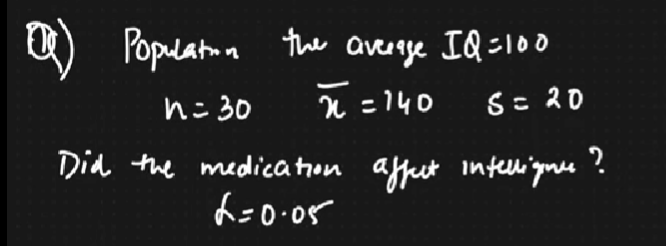 Q) Population the average IQ=100
n=30 x̄ =140 s= 20
Did the medication affect intelligence ?
α=0.05